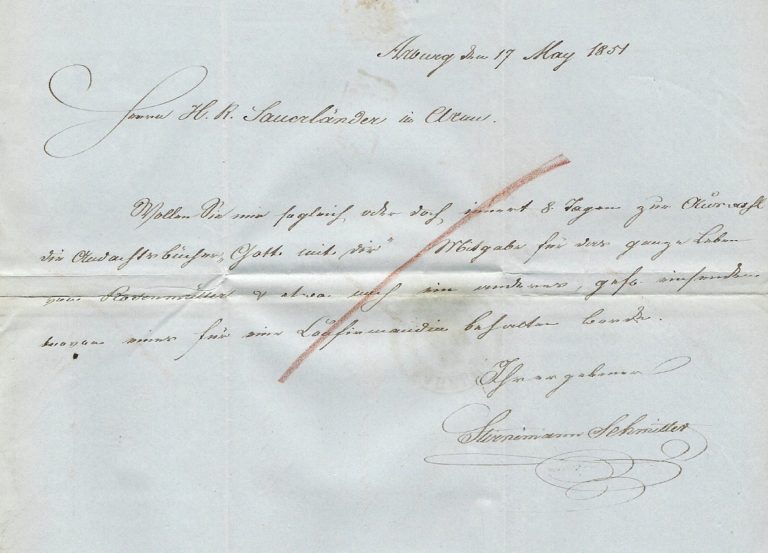 Arburg den 17 May 1851
Herrn H. R. Sauerländer in Arau.
Wollen Sie mir sogleich oder doch innert 8 Tagen zur Auswahl
die Andachtsbücher, Gott mit dir" Mitgabe für das ganze Leben
von Rosenmüller & etwa noch ein anderes, gefl. einsenden
wovon eines für eine Confirmandin behalten werde.
Ihr ergebener
Schmitter